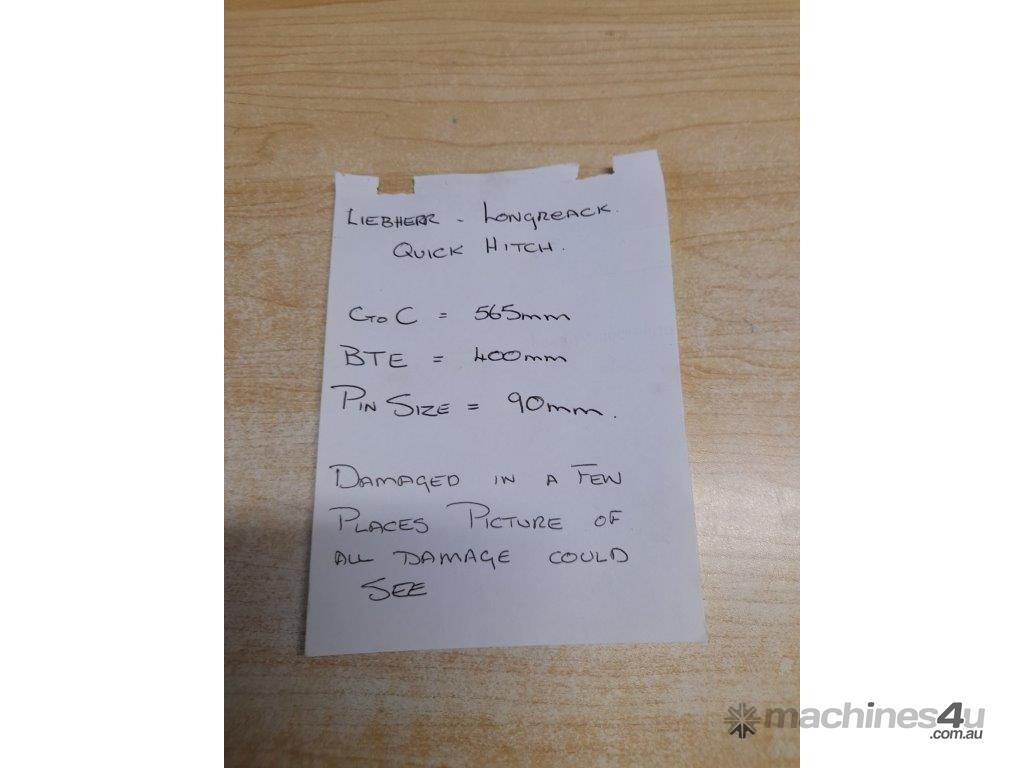 LIEBHERR - LONGREACK.
QUICK HITCH.
C TO C = 565mm
BTE = 400mm
PIN SIZE = 90mm.
DAMAGED IN A FEW
PLACES PICTURE OF
ALL DAMAGE COULD
SEE
machines4u
.com.au